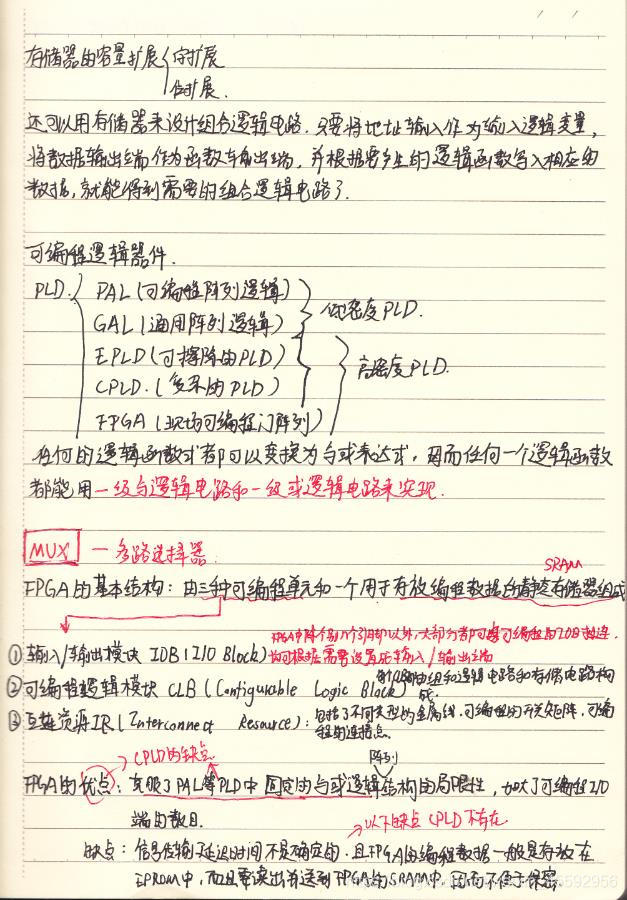 存储器的容量扩展 { 字扩展
位扩展.
还可以用存储器来设计组合逻辑电路. 只要将地址输入作为输入逻辑变量,
将数据输出端作为函数输出端, 并根据要产生的逻辑函数写入相应的
数据, 就能得到需要的组合逻辑电路了.
可编程逻辑器件.
PLD. { PAL (可编程阵列逻辑)
GAL (通用阵列逻辑) } 低密度PLD.
EPLD (可擦除的PLD)
CPLD. (复杂的PLD) } 高密度PLD.
FPGA (现场可编程门阵列)
任何的逻辑函数式都可以变换为与或表达式, 因而任何一个逻辑函数
都能用一级与逻辑电路和一级或逻辑电路来实现.
MUX — 多路选择器.
SRAM
FPGA的基本结构: 由三种可编程单元和一个用于存放编程数据的静态存储器组成
FPGA中除个别几个引脚以外, 大部分都可与可编程的IOB相连,
① 输入/输出模块 IOB (I/O Block) 均可根据需要设置成输入/输出端
② 可编程逻辑模块 CLB (Configurable Logic Block) 由组合逻辑电路和存储电路构成.
③ 互连资源 IR (Interconnect Resource): 包括了不同类型的金属线, 可编程的开关矩阵, 可编
程的连接点.
CPLD的缺点
阵列
FPGA的优点: 克服了PAL等PLD中固定的与或逻辑结构的局限性, 加大了可编程I/O
端的数目.
以下缺点CPLD不存在.
缺点: 信号传输延迟时间不是确定的. 且FPGA的编程数据一般是存放在
EPROM中, 而且要读出并送到FPGA的SRAM中, 因而不便于保密.